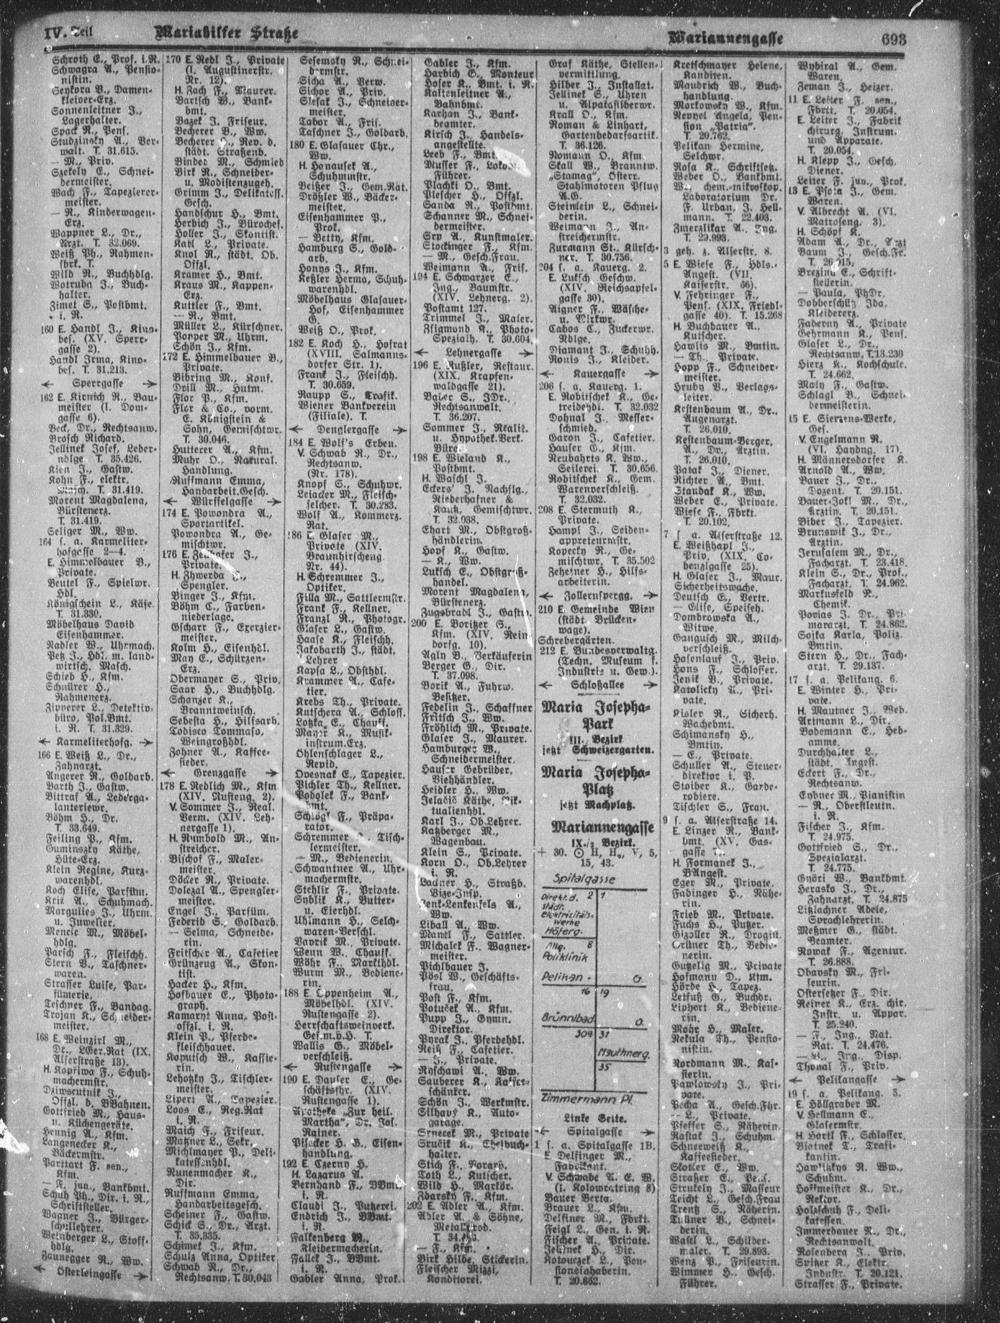 IV. Teil
Mariahilfer Straße
Mariannengasse
693
Schroth E., Prof. i.R.
Schwagra A., Pensio-
nistin.
Seykora B., Damen-
kleider-Erz.
Sonnenleitner J.,
Lagerhalter.
Spack R., Pens.
Studzinsky A., Ver-
walt. T. 31.615.
— M., Priv.
Szekely E., Schnei-
dermeister.
Wach F., Tapezierer-
meister.
— R., Kinderwagen-
Erz.
Wappner L., Dr.,
Arzt. T. 32.069.
Weiß Ph., Rahmen-
fbrkt. T.
Wild R., Buchhdlg.
Wotruba J., Buch-
halter.
Zimet S., Postbmt.
i. R.
160 E. Handl J., Kino-
bes. (XV. Sperr-
gasse 2).
Handl Irma, Kino-
bes. T. 31.213.
Sperrgasse
162 E. Kirnich R., Bau-
meister (I. Dom-
gasse 6).
Beck, Dr., Rechtsanw.
Brosch Richard.
Jellinek Josef, Leder-
ndlge T. 35.426.
Kien J., Gastw.
Kohn F., elektr.
T. 31.419.
Morent Magdalena,
Bürstenerz.
T. 31.419.
Seliger M., Ww.
164 s. a. Karmeliter-
hofgasse 2—4.
E. Himmelbauer B.,
Private.
Beutel F., Spielwr.
Hdl.
Königschein L., Käse.
T. 31.330.
Möbelhaus David
Eisenhammer.
Nadler W., Uhrmach.
Pet J., Hdl. m. land-
wirtsch. Masch.
Schieb H., Kfm.
Schnürer H.,
Rahmenerz.
Zipperer L., Detektiv-
büro, Pol.Bmt.
i. R. T. 31.329.
Karmeliterhofg.
166 E. Weiß L., Dr.,
Zahnarzt.
Angerer R., Goldarb.
Barth J., Gastw.
Bittraf A., Lederga-
lanteriewr.
Böhm H., Dr.
T. 33.649.
Feiling P., Kfm.
Guminszky Käthe,
Hüte-Erz.
Klein Regine, Kurz-
warenhdl.
Koch Elise, Parfüm.
Kriz A., Schuhmach.
Margulies J., Uhrm.
u. Juwelier.
Menele M., Möbel-
hdlg.
Parsch F., Fleischh.
Stern B., Taschner-
waren.
Strasser Luise, Par-
fümerie.
Teschner F., Bandag.
Trojan K., Schneider-
meister.
168 E. Weinzirl M.,
Dr., LGer.Rat (IX.
Alserstraße 13).
H. Kopriwa F., Schuh-
machermstr.
Dziwoutnik J.,
Offzl. d. BBahnen.
Gottfried M., Haus-
u. Küchengeräte.
Hennig A., Kfm.
Langenecker K.,
Bäckermstr.
Partart F. sen.,
Kfm.
— F. jun., Bankbmt.
Schuh Ph., Dir. i. R.,
Schriftsteller.
Wagner J., Bürger-
schullehrer.
Weinberger L., Stoff-
hdlg.
Zaunegger R., Ww.
Österleingasse
170 E. Redl J., Private
(I. Augustinerstr.
Nr. 12).
H. Zach F., Maurer.
Bartsch W., Bank-
bmt.
Bazek J. Friseur.
Becherer B., Ww.
Becherer O., Rev. d.
städt. Straßenb.
Binder M., Schmied
Birk R., Schneider-
u. Modistenzugeh.
Grimm J., Delikatess.
Gesch.
Handschur H., Bmt.
Herbich J., Bürochef.
Holler J., Skontist.
Kahl L., Private.
Knol R., städt. Ob.
Offzl.
Kramer H., Bmt.
Kraus M., Kappen-
Erz.
Kuttler F., Bmt.
— R., Bmt.
Müller L., Kürschner.
Popper M., Uhrm.
Schön J., Kfm.
172 E. Himmelbauer B.,
Private.
Bibring M., Konf.
Drill M., Hutm.
Flor P., Kfm.
Flor & Co., vorm.
C. Königstein &
Sohn, Gemischtwr.
T. 30.046.
Hutterer A., Kfm.
Muhr O., Natural.
Handlung.
Ruffmann Emma,
Handarbeit.Gesch.
Würffelgasse
174 E. Powondra A.,
Sportartikel.
Powondra A., Ge-
mischtwr.
176 E. Zeilhofer J.,
Private.
H. Zhwerda J.,
Spengler.
Binger J., Kfm.
Böhm C., Farben-
niederlage.
Gscharr F., Exerzier-
meister.
Kolm H., Eisenhdl.
May C., Schürzen-
Erz.
Obermayer S., Priv.
Saar H., Buchhdlg.
Schanzer K.,
Branntweinsch.
Sebesta H., Hilfsarb.
Todisco Tommaso,
Weingroßhdl.
Zohner A., Kaffee-
sieder.
Grenzgasse
178 E. Redlich M., Kfm
(XIV. Rusteng. 2).
V. Sommer J., Real.
Verm. (XIV. Leh-
nergasse 1).
H. Rumbold M., An-
streicher.
Bischof F., Maler-
meister.
Döcker R., Private.
Dolezal A., Spengler-
meister.
Engel J., Parfüm.
Federid S., Goldarb.
— Selma, Schneide-
rin.
Fritscher A., Cafetier
Grünzeug A., Skon-
tist.
Hacker H., Kfm.
Hofbauer E., Photo-
graph.
Kamaryt Anna, Post-
offzl. i. R.
Klein P., Pferde-
fleischhauer.
Koputsch W., Kassie-
rin.
Lehotzky J., Tischler-
meister.
Lipert A., Tapezier.
Loos E., Reg.Rat
i. R.
Maich F., Friseur.
Maßner L., Sekr.
Michlmayer P., Deli-
katess.nhdl.
Runenmacher K.,
Dir.
Ruffmann Emma,
Handarbeitsgesch.
Scheiner F., Gastw.
Schick S., Dr., Arzt.
T. 35.335.
Schimel J., Kfm.
Schulz Anna, Optiker.
Schwab R., Dr.,
Rechtsanw. T. 30.043
Sesemsky R., Schnei-
dermstr.
Sicha A., Verw.
Sichor A., Priv.
Slesak J., Schneiser-
meister.
Tabor A., Fris.
Taschner J., Goldarb.
180 E. Glasauer Chr.,
Ww.
H. Hanausek A.,
Schuhmustr.
Beißer J., Gem.Rat.
Dröhsler W., Bäcker-
meister.
Eisenhammer P.,
Prok.
— Betty, Kfm.
Hamburg S., Gold-
arb.
Honys J., Kfm.
Keßler Herma, Schuh-
warenhdl.
Möbelhaus Glasauer-
Hof, Eisenhammer
G.
Weiß O., Prok.
182 E. Koch H., Hofrat
(XVIII. Salmanns-
dorfer Str. 1).
Frank J., Fleischh.
T. 30.659.
Raupp S., Trafik.
Wiener Bankverein
(Filiale), T.
Denglergasse
184 E. Wolf's Erben.
V. Schwab R., Dr.,
Rechtsanw.
(Nr. 178).
Knopf S., Schuhwr.
Leiacker M., Fleisch-
selcher. T. 30.283.
Wolf A., Kommerz.
Rat.
186 E. Glaser M.,
Private (XIV.
Braunhirscheng.
Nr. 44).
H. Schremmer J.,
Optiker.
Filla M., Sattlermstr.
Frank F., Kellner.
Franzl R., Photogr.
Glaser L., Gastw.
Haase K., Fleischh.
Jakobarth J., städt.
Lehrer
Kapsa L., Obsthdl.
Krammer A., Cafe-
tier.
Krebs Th., Private.
Kutschera A., Schloss.
Lotzka, E., Chauff.
Mayer K., Musik-
instrum.Erz.
Ohlenschlager L.,
Revid.
Ovesnak E., Tapezier.
Pichler Th., Kellner.
Podolek F., Bank-
bmt.
Schlögl F., Präpa-
rator.
Schremmer J., Tisch-
lermeister.
— M., Bedienerin.
Schwantner A., Uhr-
machermstr.
Stehlir F., Private.
Syblik K., Butter-
u. Eierhdl.
Uhlmann H., Selch-
waren-Verschl.
Vavrik M., Private.
Wenn W., Chauff.
Wöhr F., Markthdl.
Wurm M., Bediene-
rin.
188 E. Oppenheim A.,
Möbelhdl. (XIV.
Rustengasse 2).
Herrschaftsweinverk.
Ges.m.b.H. T.
Wallis G., Möbel-
verschleiß.
Rustengasse
190 E. Dapser E., Ge-
schäftsfhr. (XIV.
Rustengasse 1).
Apotheke „Zur heil.
Martha", Dr. Jos.
Rainer.
Pilecker H. H., Eisen-
handlung.
192 E. Czerny H.
H. Lazarus A.
Bernhard F., BBmt.
i. R.
Claudi J., Putzerei.
Endrich J., BBmt.
i. R.
Falkenberg M.,
Kleidermacherin.
Fallek J., BBmt.
i. R.
Gabler Anna, Prof.
Gabler J., Kfm.
Harbich G., Monteur
Hofer K., Bmt. i. R.
Kaltenleitner A.,
Bahnbmt.
Karhan J., Bank-
beamter.
Kirsch J., Handels-
angestellte.
Leeb F., Bmt.
Musser F., Lokom.
Führer.
Plachki O., Bmt.
Plescher H., Offzl.
Sanda R., Postbmt.
Schanner M., Schnei-
dermeister.
Srp A., Kunstmaler.
Stockinger F., Kfm.
— M., Gesch.Frau.
Weimann A., Fris.
194 E. Schwarzer E.,
Ing., Baumstr.
(XIV. Lehnerg. 2).
Postamt 127.
Trimmel J., Maler.
Zsigmond K., Photo-
Spezialh. T. 30.604.
Lehnergasse
196 E. Rußler, Restaur.
(XIX. Krapfen-
waldgasse 21).
Baler S., JDr.
Rechtsanwalt.
T. 36.207.
Sommer J., Realit.
u. Hypothek.Verk.
Büro.
198 E. Wieland K.,
Postbmt.
H. Waschl J.
Eckers J. Nachflg.,
Riederhafner &
Kautz, Gemischtwr.
T. 32.038.
Ebart M., Obstgroß-
händlerin.
Hopf K., Gastw.
— K., Ww.
Luksch E., Obstgroß-
handel.
Morent Magdalena,
Bürstenerz.
Zugsbradl J., Gastw.
200 E. Boritzer S.,
Kfm. (XIV. Rein-
dorfg. 10).
Agln B., Verkäuferin
Berger G., Dir.
T. 37.098.
Borik A., Fuhrw.
Besitzer.
Fedelin J., Schaffner
Fritsch J., Ww.
Fröhlich M., Private.
Glaser J., Maurer.
Hamburger W.,
Schneidermeister.
Hauser Gebrüder,
Viehhändler.
Heidler H., Ww.
Jelacic Käthe, Vik-
tualienhdl.
Karl J., Ob.Lehrer.
Katzberger M.,
Wagenbau.
Klein S., Private.
Korn O., Ob.Lehrer
i. R.
Ladner H., Straßb.
Vize-Insp.
Lenk-Lenkenfels A.,
Ww.
Liball A., Ww.
Mantl F., Sattler.
Michalek F., Wagner-
meister.
Pichlbauer J.
Pösl W., Geschäfts-
frau.
Post F., Kfm.
Potucek A., Kfm.
Pupp J., Gymn.
Direktor.
Pyrak J., Pferdehdl.
Reiß F., Cafetier.
— J., Private.
Ryschawi A., Ww.
Sauberer K., Kaffee-
schänker.
Schön J., Werkmstr.
Silhavy K., Auto-
garage.
Private
halter.
Stich F., Totarb.
Toth L., Kutscher.
Wild H., Markör.
Zdarsky F., Kfm.
202 E. Adler A., Kfm.
Adler A. & Söhne,
Metallprod.
T. 34.
— F., Kfm.
Birk Hilde, Stickerin.
Fleischer Mizzi,
Konditorei.
Graf Käthe, Stellen-
vermittlung.
Hilber J., Installat.
Jellinek S., Uhren
u. Alpakasilberwr.
Krall O., Kfm.
Roman & Linhart,
Gartenbedarfsartik.
T. 36.126.
Romann O., Kfm.
Skall W., Branntw.
„Stamag", Österr.
Stahlmotoren Pflug
A.G.
Steinlein L., Schnei-
derin.
Weimann J., An-
streichermstr.
Zurmann St. Kürsch-
ner. T. 30.756.
204 s. a. Kauerg. 2.
E. Luksch Geschw.
(XIV. Reichsapfel-
gasse 30).
Aigner F., Wäsche-
u. Wirkwr.
Cabos C., Zuckerwr.
Ndlge.
Diamant J., Schuhh.
Ronis J., Kleider.
Kauergasse
206 s. a. Kauerg. 1.
E. Robitschek K., Ge-
treidehdl. T. 32.032
Dohnal J., Messer-
schmied.
Garon J., Cafetier.
Hauser G., Kfm.
Neubahrts K. Ww.,
Seilerei. T. 30.656.
Robitschek K., Gem.
Warenverschleiß.
T. 32.032.
208 E. Stermuth K.,
Private.
Hampl J., Seiden-
appreteurmstr.
Kopecky R., Ge-
mischtwr. T. 35.502
Zehetner H., Hilfs-
arbeiterin.
Zollernsperg.
210 E. Gemeinde Wien
(städt. Brücken-
wage).
Schrebergärten.
212 E. Bundesverwaltg.
(Techn. Museum f.
Industrie u. Gew.).
Schloßallee
Maria Josepha-
Park
III. Bezirk
jetzt Schweizergarten.
Maria Josepha-
Platz
jetzt Machplatz.
Mariannengasse
IX. Bezirk.
+ 30. ⊙ H, H₂, V, 5,
J, 43.
Spitalgasse
Direkt.d.
städt.
elektrizitäts-
werke
2 1
Höferg.
Allg.
Poliklinik
8
Pelikan - G.
16 19
Brünnlbad G.
30a 31
Mauthnerg.
35
Zimmermann Pl.
Linke Seite.
Spitalgasse
1 s. a. Spitalgasse 1B.
E. Delfinger M.,
Fabrikant.
V. Schwabe A. E. W.
(I. Kolowratring 8)
Bauer Berta.
Brauer L., Kfm.
Delfiner M., Fbrkt.
Feigl L., Gen. i. R.
Fischer A., Private.
Jelinek H., Dir.
Kotouczek L., Pen-
sionsinhaberin.
T. 20.662.
Kretschmayer Helene,
Kanditen.
Maudrich W., Buch-
handlung.
Morkowsky W., Kfm.
Neuhel Angela, Pen-
sion „Patria".
T. 20.762.
Pelikan Hermine,
Selchwr.
Rosa K., Schriftsetz.
Weber O., Bankbmt.
W., chem.-mikroskop.
Laboratorium Dr.
F. Urban, J. Hell-
mann. T. 22.403.
Zmeralikar A., Ing.
T. 29.993.
3 geh. z. Alserstr. 8.
5 E. Wiese F., Hdls.-
Angest. (VII.
Kaiserstr. 46).
V. Fehringer F.,
Pens. (XIX. Friedl-
gasse 40). T. 15.268
H. Buchbauer A.,
Kutscher.
Havlis M., Bmtin.
— Th., Private.
Hopp F., Schneider-
meister.
Hruby B., Verlags-
leiter.
Kestenbaum A., Dr.,
Augenarzt.
T. 26.010.
Kestenbaum-Berger,
A., Dr., Ärztin.
T. 26.010.
Patak J., Diener.
Richter A., Bmt.
Standak K., Ww.
Weber E., Private.
Wiese F., Fbrkt.
T. 20.102.
7 s. a. Alserstraße 12.
E. Weißhapl J.,
Priv. (XIX. Co-
benzlgasse 25).
H. Glaser J., Maur.
Sicherheitswache.
Deutsch E., Vertr.
— Elise, Speiseh.
Dombrowska A.,
Witwe.
Gangusch M., Milch-
verschleiß.
Hosenlauf J., Priv.
Hons F., Schlosser.
Jenik B., Private.
Katolicky A., Pri-
vate.
Kisler R., Sicherh.
Wachebmt.
Schimansky H.,
Bmtin.
— E., Private.
Schuller A., Steuer-
direktor i. P.
Stoiber K., Garde-
robiere.
Tischler S., Frau.
9 s. a. Alserstraße 14.
E. Linzer R., Bank-
bmt. (XV. Gas-
gasse
H. Formanek J.,
BAngest.
Eger M., Private.
Fadinger H., Nähe-
rin.
Frieb M., Private.
Fuchs H., Putzer.
Gizöller R., Drogist.
Grüner Th., Bedie-
nerin.
Gutzelig M., Private
Hofmann D., Htm.
Hörde H., Tapez.
Letfuß G., Buchdr.
Liphart K., Bediene-
rin.
Mohr H., Maler.
Nekula Th., Pensio-
nistin.
Nordmann M., Kas-
sierin.
Pawlowsky J., Pri-
vate.
Pecha A., Gesch.Fhr.
— L., Private.
Pfeffer S., Näherin.
Rastak J., Schuhm.
Schneeweiß K.,
Kaffeesieder.
Skotler E., Ww.
Straßer E., Pens.
Strukeln J., Masseur
Teicht L., Gesch.Frau
Trentz S., Näherin.
Tußner B., Schnei-
derin.
Wasel L., Schilder-
maler. T. 29.893.
Wenz P., Friseurin.
Wimmer H., Gesch.
Führer.
Wyhiral A., Gem.
Waren.
Zeman J., Heizer.
11 E. Leiter F. sen.,
Fbrkt. T. 20.054.
E. Leiter J., Fabrik
chirurg. Instrum.
und Apparate.
T. 20.054.
H. Klepp J., Gesch.
Diener.
Leiter F. jun., Prok.
13 E. Psota J., Gem.
Waren.
V. Albrecht A. (VI.
Matroseng. 3).
H. Schöpf K.
Adam A., Dr., Arzt
Baum J., Gesch.Fr.
T. 26.215.
Brezina E., Schrift-
stellerin.
— Paula, PhDr.
Dobberschütz Ida,
Kleidererz.
Faderny A., Private
Gehrmann K., Pens.
Glaser L., Dr.,
Rechtsanw. T.13.230
Hierz K., Hochschule.
T. 24.662.
Maly F., Gastw.
Schlagl B., Schnei-
dermeisterin.
15 E. Siemens-Werke,
Ges.
V. Engelmann R.
(VI. Haydng. 17).
H. Männersdorfer K.
Arnold A., Ww.
Bauer J., Dr.,
Dozent. T. 20.151.
Bauer-Jokl M., Dr.,
Ärztin. T. 20.151.
Biber J., Tapezier.
Brunswik J., Dr.,
Ärztin.
Jerusalem M., Dr.,
Facharzt. T. 23.418.
Klein S., Dr., Prof.,
Facharzt. T. 24.962.
Markusfeld R.,
Chemik.
Povias J., Dr., Pri-
marazt. T. 24.862.
Sojka Karla, Poliz.
Bmtin.
Stern H., Dr., Fach-
arzt. T. 29.137.
17 s. a. Pelikang. 6.
E. Winter H., Pri-
vate.
H. Mautner J., Web.
Artmann L., Dir.
Bodemann E., Heb-
amme.
Durchhalter L.,
städt. Angest.
Eckert F., Dr.,
Rechtsanw.
Exdner M., Pianistin
— R., Oberstleutn.
i. R.
Fischer J., Kfm.
T. 24.975.
Gottfried S., Dr.,
Spezialarzt.
T. 24.775.
Györi W., Bankbmt.
Herasko J., Dr.,
Zahnarzt. T. 24.875
Litzlachner Adele,
Sprachlehrerin.
Meßmer G., städt.
Beamter.
Nowak F., Agentur.
T. 26.888.
Obavsky M., Fri-
seurin.
Ostersetzer F., Dir.
Reiner K., Erz. chir.
Instr. u. Appar.
T. 25.240.
— F., Ing., Nat.
Rat. T. 24.476.
— B., Ing., Disp.
Thonal F., Priv.
Pelikangasse
19 s. a. Pelikang. 5.
E. Höllgruber M.
V. Hellmann E.,
Glasermstr.
H. Hortl F., Schlosser.
Biotnet T., Trafi-
kantin.
Hawlitzky R., Ww.,
Schuhm.
Hoffmeister K., Dr.,
Rektor.
Holzschuh F., Deli-
katessen.
Immerdauer R., Dr.,
Rechtsanwalt.
Rosenberg J., Priv.
Spitzer K., Elektr.
Industr. T. 20.121.
Strasser F., Private.